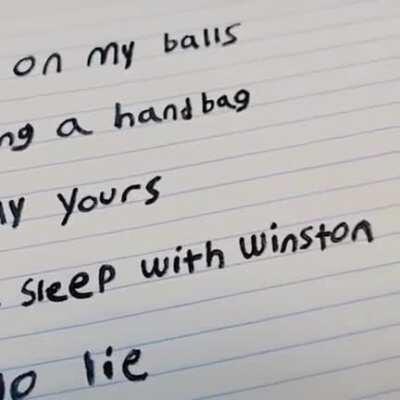 on my balls
ng a handbag
ly yours
sleep with winston
lo lie